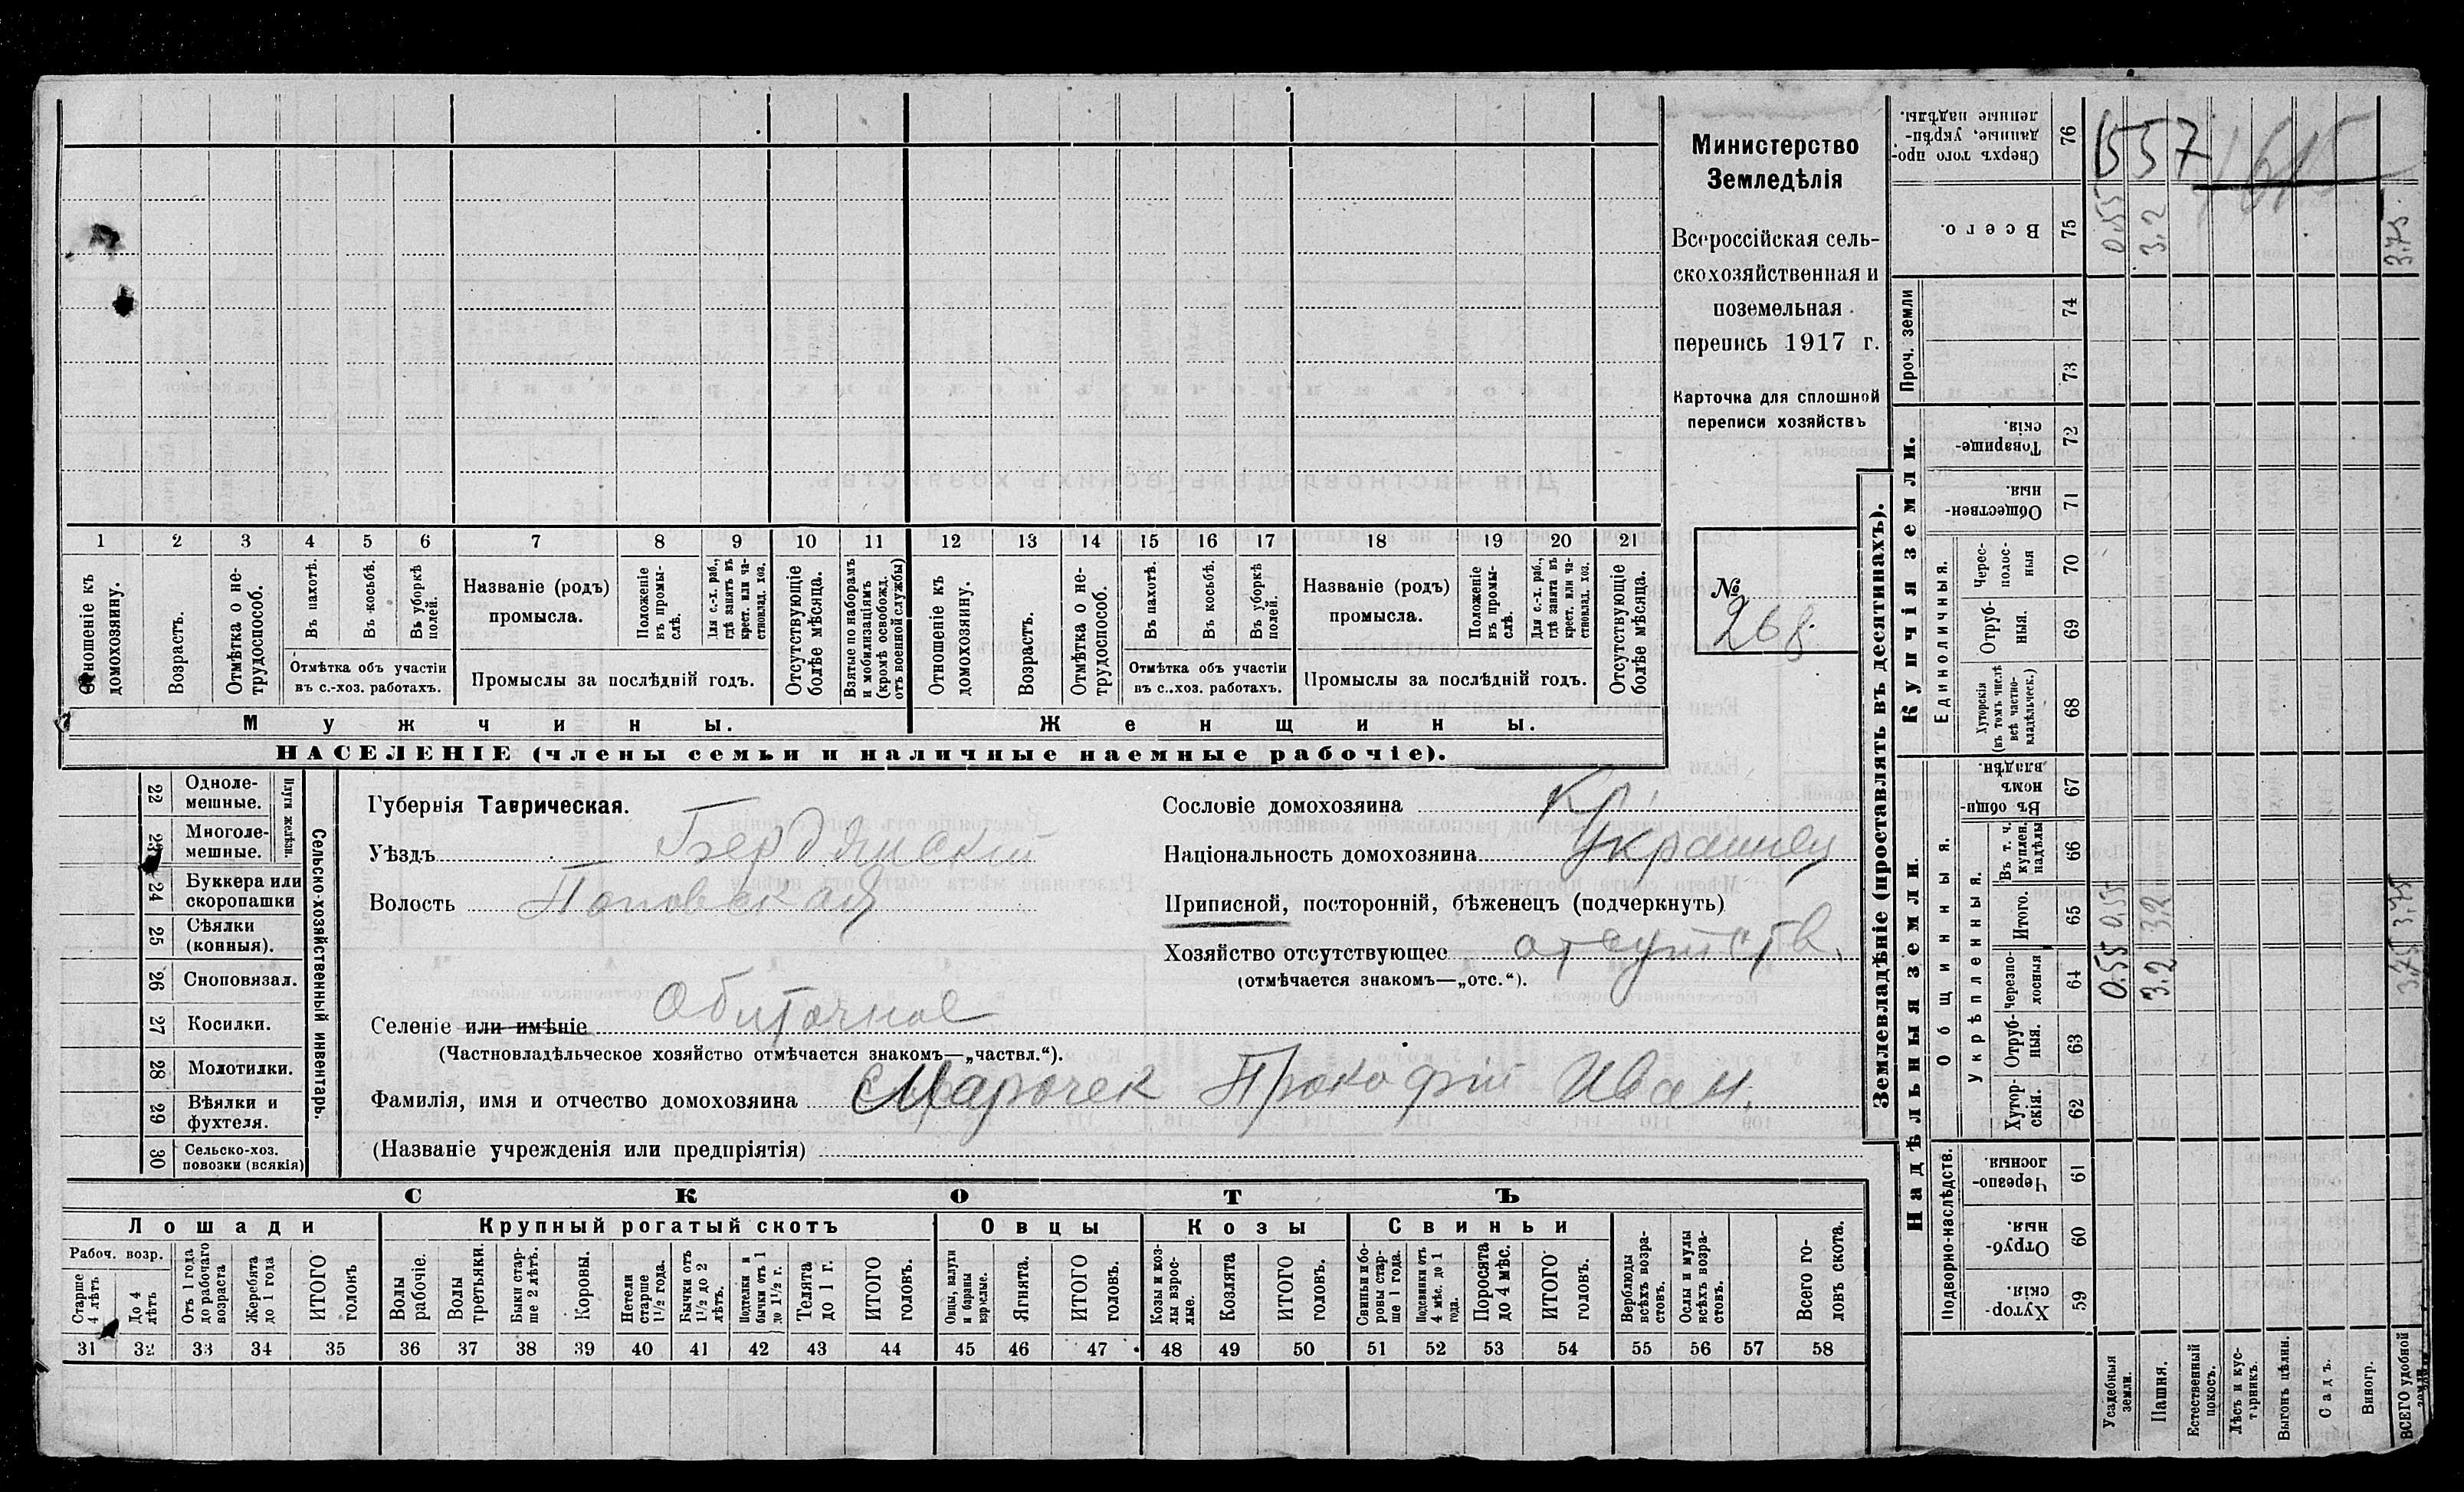 Министерство
Земледѣлія
Всероссійская сель-
скохозяйственная и
поземельная
перепись 1917 г.
Карточка для сплошной
переписи хозяйствъ
№
268
1 2 3 4 5 6 7 8 9 10 11 12 13 14 15 16 17 18 19 20 21
Отношеніе къ домохозяину.
Возрастъ.
Отмѣтка о не-трудоспособ.
Въ пахотѣ.
Въ косьбѣ.
Въ уборкѣ полей.
Отмѣтка объ участіи
въ с.-хоз. работахъ.
Названіе (родъ)
промысла.
Положеніе въ промы-слѣ.
Для с.-х. раб., гдѣ занятъ въ крест. или ча-стновлад. хоз.
Промыслы за послѣдній годъ.
Отсутствующіе болѣе мѣсяца.
Взятые по наборамъ и мобилизаціямъ (кромѣ освобожд. отъ военной службы)
Отношеніе къ домохозяину.
Возрастъ.
Отмѣтка о не-трудоспособ.
Въ пахотѣ.
Въ косьбѣ.
Въ уборкѣ полей.
Отмѣтка объ участіи
въ с.-хоз. работахъ.
Названіе (родъ)
промысла.
Положеніе въ промы-слѣ.
Для с.-х. раб., гдѣ занята въ крест. или ча-стновлад. хоз.
Промыслы за послѣдній годъ.
Отсутствующіе болѣе мѣсяца.
Мужчины.
Женщины.
НАСЕЛЕНІЕ (члены семьи и наличные наемные рабочіе).
Сельско-хозяйственный инвентарь.
Плуги желѣзн.
22 Одноле-мешные.
23 Многоле-мешные.
24 Буккера или скоропашки
25 Сѣялки (конныя).
26 Сноповязал.
27 Косилки.
28 Молотилки.
29 Вѣялки и фухтеля.
30 Сельско-хоз. повозки (всякія)
Губернія Таврическая.
Уѣздъ Бердянскій
Волость Поповская
Селеніе или имѣніе Обиточное
(Частновладѣльческое хозяйство отмѣчается знакомъ—„частвл.“).
Фамилія, имя и отчество домохозяина Марочек Прокофій Иван.
(Названіе учрежденія или предпріятія)
Сословіе домохозяина Кр.
Національность домохозяина Украинец
Приписной, посторонній, бѣженецъ (подчеркнуть)
Хозяйство отсутствующее отсутств.
(отмѣчается знакомъ—„отс.“).
СКОТЪ
Лошади
Крупный рогатый скотъ
Овцы
Козы
Свиньи
Рабоч. возр.
Старше 4 лѣтъ
До 4 лѣтъ
Отъ 1 года до рабочаго возраста
Жеребята до 1 года
ИТОГО головъ
Волы рабочіе.
Волы третьяки.
Быки стар-ше 2 лѣтъ.
Коровы.
Нетели старше 1½ года.
Бычки отъ 1½ до 2 лѣтъ.
Подтелки и бычки отъ 1 до 1½ г.
Телята до 1 г.
ИТОГО головъ.
Овцы, валухи и бараны взрослые.
Ягнята.
ИТОГО головъ.
Козы и коз-лы взрос-лые.
Козлята
ИТОГО головъ.
Свиньи и бо-ровы стар-ше 1 года.
Подсвинки отъ 4 мѣс. до 1 года.
Поросята до 4 мѣс.
ИТОГО головъ.
Верблюды всѣхъ возра-стовъ.
Ослы и мулы всѣхъ возра-стовъ.
Всего го-ловъ скота.
31 32 33 34 35 36 37 38 39 40 41 42 43 44 45 46 47 48 49 50 51 52 53 54 55 56 57 58
Землевладѣніе (проставлять въ десятинахъ).
Надѣльныя земли.
Купчія земли.
Проч. земли
Подворно-наслѣдств.
Общинныя.
Укрѣпленныя.
Единоличныя.
Сверхъ того про-данные, укрѣп-ленные надѣлы. 76
Всего. 75
74
73
Товарище-скія. 72
Обществен-ныя. 71
Черес-полос-ныя 70
Отруб-ныя. 69
Хуторскія (въ томъ числѣ всѣ частно-владѣльческ.) 68
Въ общи-номъ владѣн. 67
Въ т. ч. куплен. надѣлы 66
Итого. 65
Черезпо-лосныя 64
Отруб-ныя. 63
Хутор-скія. 62
Черезпо-лосныя. 61
Отруб-ныя. 60
Хутор-скія. 59
Усадебныя земли.
Пашня.
Естественный покосъ.
Лѣсъ и кус-тарникъ.
Выгонъ цѣлин.
Садъ.
Виногр.
ВСЕГО удобной земли
557
1615
0.55 3,2 3,75
0.55 3,2 3,75
0.55 3.2 3,75